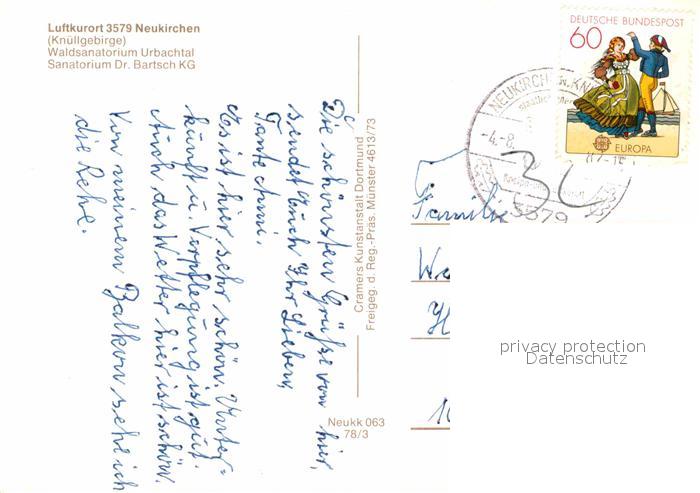 Luftkurort 3579 Neukirchen
(Knüllgebirge)
Waldsanatorium Urbachtal
Sanatorium Dr. Bartsch KG
Die schönsten Grüße von hier,
sendet Euch Ihr Lieben,
Tante
Es ist hier sehr schön. Unter=
kunft u. Verpflegung ist gut.
Auch das Wetter hier ist schön.
Von meinem Balkon sehe ich
die Rehe.
Cramers Kunstanstalt Dortmund
Freigeg. d. Reg.-Präs. Münster 4613/73
Neukk 063
78/3
DEUTSCHE BUNDESPOST
60
EUROPA
NEUKIRCHEN, KN
-4.-8.
3579
Familie
privacy protection
Datenschutz